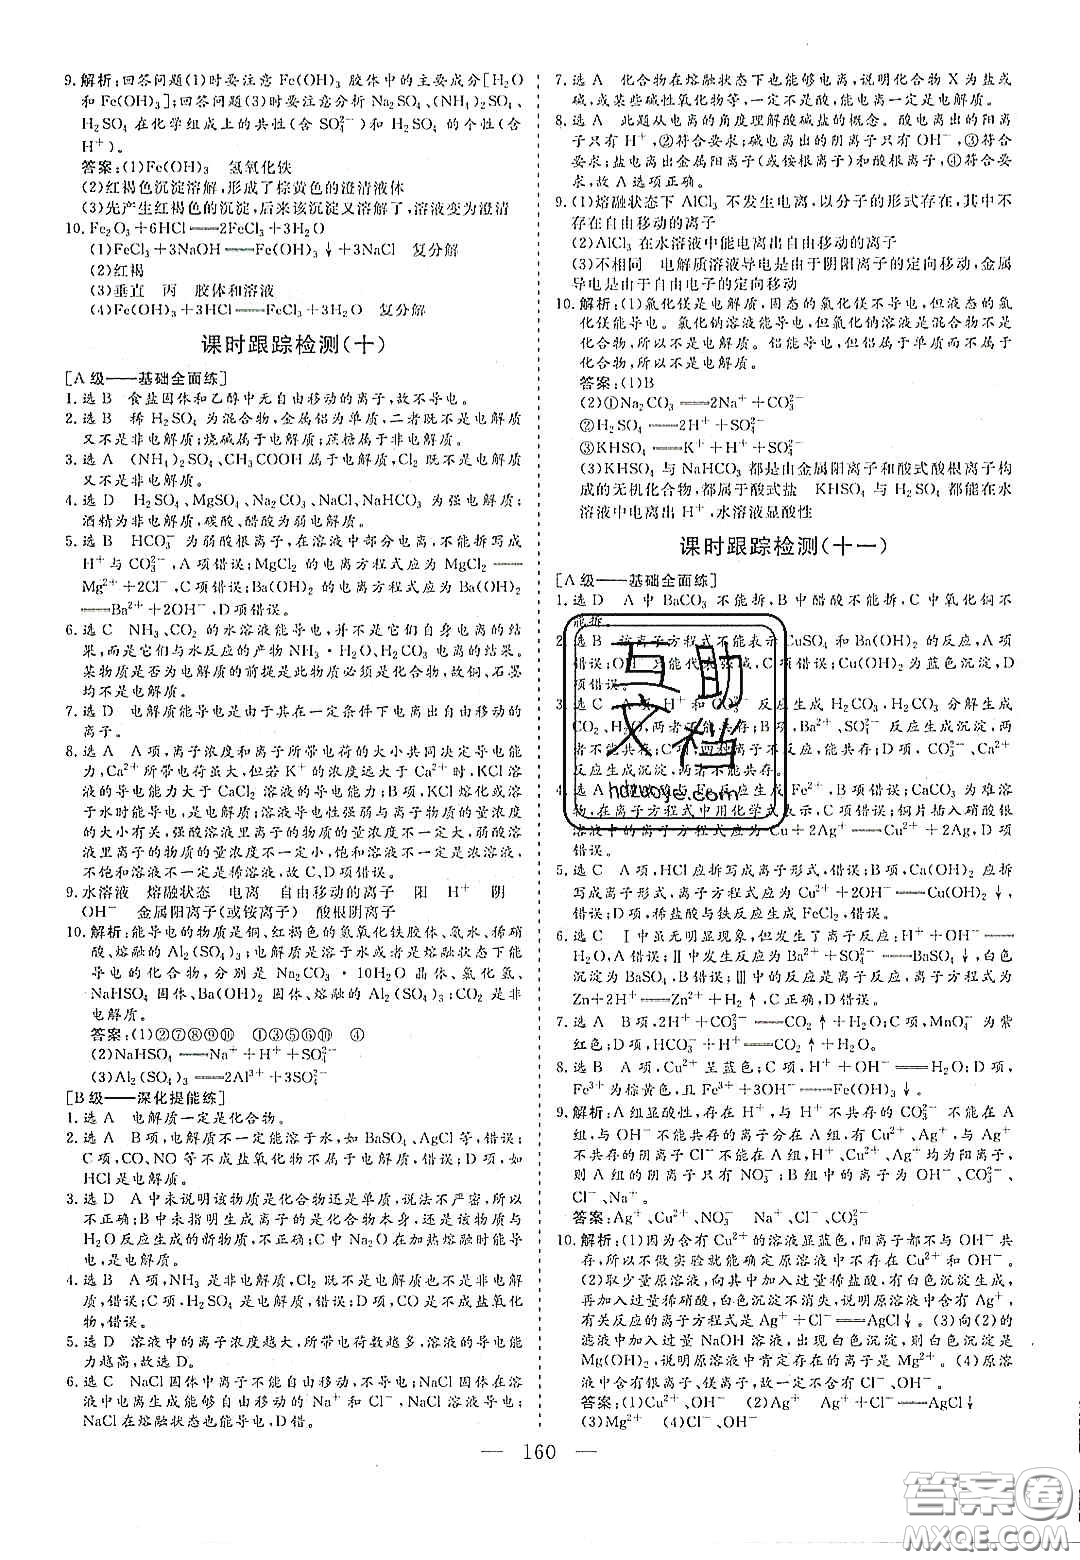 9. 解析:回答问题(1)时要注意 Fe(OH)₃ 胶体中的主要成分[H₂O
和 Fe(OH)₃];回答问题(3)时要注意分析 Na₂SO₄、(NH₄)₂SO₄、
H₂SO₄ 在化学组成上的共性(含 SO₄²⁻)和 H₂SO₄ 的个性(含
H⁺)。
答案:(1)Fe(OH)₃ 氢氧化铁
(2)红褐色沉淀溶解,形成了棕黄色的澄清液体
(3)先产生红褐色的沉淀,后来该沉淀又溶解了,溶液变为澄清
10. Fe₂O₃+6HCl══2FeCl₃+3H₂O
(1)FeCl₃+3NaOH══Fe(OH)₃↓+3NaCl 复分解
(2)红褐
(3)垂直 丙 胶体和溶液
(4)Fe(OH)₃+3HCl══FeCl₃+3H₂O 复分解
课时跟踪检测(十)
[A 级——基础全面练]
1. 选 B 食盐固体和乙醇中无自由移动的离子,故不导电。
2. 选 B 稀 H₂SO₄ 为混合物,金属铝为单质,二者既不是电解质
又不是非电解质;烧碱属于电解质;蔗糖属于非电解质。
3. 选 A (NH₄)₂SO₄、CH₃COOH 属于电解质,Cl₂ 既不是电解质
又不是非电解质。
4. 选 D H₂SO₄、MgSO₄、Na₂CO₃、NaCl、NaHCO₃ 为强电解质;
酒精为非电解质,碳酸、醋酸为弱电解质。
5. 选 B HCO₃⁻ 为弱酸根离子,在溶液中部分电离,不能拆写成
H⁺与 CO₃²⁻,A 项错误;MgCl₂ 的电离方程式应为 MgCl₂══
Mg²⁺+2Cl⁻,C 项错误;Ba(OH)₂ 的电离方程式应为 Ba(OH)₂
══Ba²⁺+2OH⁻,D 项错误。
6. 选 C NH₃、CO₂ 的水溶液能导电,并不是它们自身电离的结
果,而是它们与水反应的产物 NH₃·H₂O、H₂CO₃ 电离的结果。
某物质是否为电解质的前提是此物质必须是化合物,故铜、石
墨均不是电解质。
7. 选 D 电解质能导电是由于其在一定条件下电离出自由移动的
离子。
8. 选 A A 项,离子浓度和离子所带电荷的大小共同决定导电能
力,Ca²⁺所带电荷虽大,但若 K⁺的浓度远大于 Ca²⁺时,KCl 溶
液的导电能力大于 CaCl₂ 溶液的导电能力;B 项,KCl 熔化或溶
于水时能导电,是电解质;溶液导电性强弱与离子物质的量浓度
的大小有关,强酸溶液里离子的物质的量浓度不一定大,弱酸溶
液里离子的物质的量浓度不一定小,饱和溶液不一定是浓溶液,
不饱和溶液不一定是稀溶液,故 C、D 项错误。
9. 水溶液 熔融状态 电离 自由移动的离子 阳 H⁺ 阴
OH⁻ 金属阳离子(或铵离子) 酸根阴离子
10. 解析:能导电的物质是铜、红褐色的氢氧化铁胶体、氨水、稀硝
酸、熔融的 Al₂(SO₄)₃;电解质是溶于水或者是熔融状态下能
导电的化合物,分别是 Na₂CO₃·10H₂O 晶体、氯化氢、
NaHSO₄ 固体、Ba(OH)₂ 固体、熔融的 Al₂(SO₄)₃;CO₂ 是非
电解质。
答案:(1)②⑦⑧⑨⑩ ①③⑤⑥⑩ ④
(2)NaHSO₄══Na⁺+H⁺+SO₄²⁻
(3)Al₂(SO₄)₃══2Al³⁺+3SO₄²⁻
[B 级——深化提能练]
1. 选 A 电解质一定是化合物。
2. 选 A B 项,电解质不一定能溶于水,如 BaSO₄、AgCl 等,错误;
C 项,CO、NO 等不成盐氧化物不属于电解质,错误;D 项,如
HCl 是电解质,错误。
3. 选 D A 中未说明该物质是化合物还是单质,说法不严密,所以
不正确;B 中未指明生成离子的是化合物本身,还是该物质与
H₂O 反应生成的新物质,不正确;C 中 Na₂O 在加热熔融时能导
电,是电解质,不正确。
4. 选 B A 项,NH₃ 是非电解质,Cl₂ 既不是电解质也不是非电解
质,错误;C 项,H₂SO₄ 是电解质,错误;D 项,CO 是不成盐氧化
物,错误。
5. 选 D 溶液中的离子浓度越大,所带电荷数越多,溶液的导电能
力越高,故选 D。
6. 选 C NaCl 固体中离子不能自由移动,不导电;NaCl 在水溶
液中电离生成能够自由移动的 Na⁺和 Cl⁻,NaCl 溶液能导电;
NaCl 在熔融状态也能导电,D 错。
7. 选 A 化合物在熔融状态下也能够电离,说明化合物 X 为盐或
碱,或某些碱性氧化物等,一定不是酸,能电离一定是电解质。
8. 选 A 此题从电离的角度理解酸碱盐的概念。酸电离出的阳离
子只有 H⁺,②符合要求;碱电离出的阴离子只有 OH⁻,③符合
要求;盐电离出金属阳离子(或铵根离子)和酸根离子,①符合
要求。故 A 选项正确。
9. (1)熔融状态下 AlCl₃ 不发生电离,以分子的形式存在,其中不
存在自由移动的离子
(2)AlCl₃ 在水溶液中能电离出自由移动的离子
(3)不相同 电解质溶液导电是由于阴阳离子的定向移动,金属
导电是由于自由电子的定向移动
10. 解析:(1)氯化镁是电解质,固态的氯化镁不导电,但液态的氯
化镁能导电。氯化钠溶液能导电,但氯化钠溶液是混合物不是
化合物,所以不是电解质。铝能导电,但属于单质不是化合物,
所以不是电解质。
答案:(1)B
(2)①Na₂CO₃══2Na⁺+CO₃²⁻
②H₂SO₄══2H⁺+SO₄²⁻
③KHSO₄══K⁺+H⁺+SO₄²⁻
(3)KHSO₄ 与 NaHCO₃ 都是由金属阳离子和酸式酸根离子构
成的无机化合物,都属于酸式盐 KHSO₄ 与 H₂SO₄ 都能在水
溶液中电离出 H⁺,水溶液显酸性
课时跟踪检测(十一)
[A 级——基础全面练]
1. 选 D A 中 BaCO₃ 不能拆,B 中醋酸不能拆,C 中氧化铜不
能拆。
2. 选 B 该离子方程式不能表示 CuSO₄ 和 Ba(OH)₂ 的反应,A 项
错误;OH⁻只能代表强碱,C 项错误;Cu(OH)₂ 为蓝色沉淀,D
项错误。
3. 选 C A 项,H⁺和 CO₃²⁻ 反应生成 H₂CO₃,H₂CO₃ 分解生成
CO₂、H₂O,两者不能共存;B 项,Ba²⁺、SO₄²⁻ 反应生成沉淀,两
者不能共存;C 项,四种离子不反应,能共存;D 项,
反应生成沉淀,两者不能共存。
4. 选 A 反应生成 Fe²⁺,B 项错误;CaCO₃ 为难溶
物,在离子方程式中用化学式表示,C 项错误;铜片插入硝酸银
溶液中的离子方程式应为 Cu+2Ag⁺══Cu²⁺+2Ag,D 项
错误。
5. 选 C A 项,HCl 应拆写成离子形式,错误;B 项,CuCl₂ 应拆
写成离子形式,离子方程式应为 Cu²⁺+2OH⁻══Cu(OH)₂↓,
错误;D 项,稀盐酸与铁反应生成 FeCl₂,错误。
6. 选 C Ⅰ中虽无明显现象,但发生了离子反应:H⁺+OH⁻══
H₂O,A 错误;Ⅱ中发生反应为 Ba²⁺+SO₄²⁻══BaSO₄↓,白色
沉淀为 BaSO₄,B 错误;Ⅲ中的反应是离子反应,离子方程式为
Zn+2H⁺══Zn²⁺+H₂↑,C 正确,D 错误。
7. 选 A B 项,2H⁺+CO₃²⁻══CO₂↑+H₂O,MnO₄⁻ 为紫
红色;D 项,HCO₃⁻+H⁺══CO₂↑+H₂O。
8. 选 B A 项,Cu²⁺呈蓝色;C 项,H⁺+OH⁻══H₂O;D 项,
Fe³⁺为棕黄色,且 Fe³⁺+3OH⁻══Fe(OH)₃↓。
9. 解析:A 组显酸性,存在 H⁺,与 H⁺不共存的 CO₃²⁻ 不能在 A
组,与 OH⁻不能共存的离子分在 A 组,有 Cu²⁺、Ag⁺,与 Ag⁺
不共存的阴离子 Cl⁻不能在 A 组;因 Cu²⁺、Ag⁺均为阳离子,
所以 A 组的阴离子只有 NO₃⁻;B 组中的离子为 OH⁻、CO₃²⁻、
Cl⁻、Na⁺。
答案:Ag⁺、Cu²⁺、NO₃⁻ Na⁺、Cl⁻、CO₃²⁻
10. 解析:(1)因为含有 Cu²⁺的溶液显蓝色,阳离子都不与 OH⁻共
存,所以不做实验就能确定原溶液中不存在 Cu²⁺和 OH⁻。
(2)取少量原溶液,向其中加入过量稀盐酸,有白色沉淀生成,
再加入过量稀硝酸,白色沉淀不消失,说明原溶液中含有 Ag⁺,
有关反应的离子方程式是 Ag⁺+Cl⁻══AgCl↓。(3)向(2)的
滤液中加入过量 NaOH 溶液,出现白色沉淀,则白色沉淀是
Mg(OH)₂,说明原溶液中肯定存在的离子是 Mg²⁺。(4)原溶
液中含有银离子、镁离子,一定不含有 Cl⁻、OH⁻。
答案:(1)Cu²⁺、OH⁻ (2)Ag⁺ Ag⁺+Cl⁻══AgCl↓
(3)Mg²⁺ (4)Cl⁻、OH⁻
— 160 —
互助
文档
hdzuoye.com
答案圈
MXQE.COM